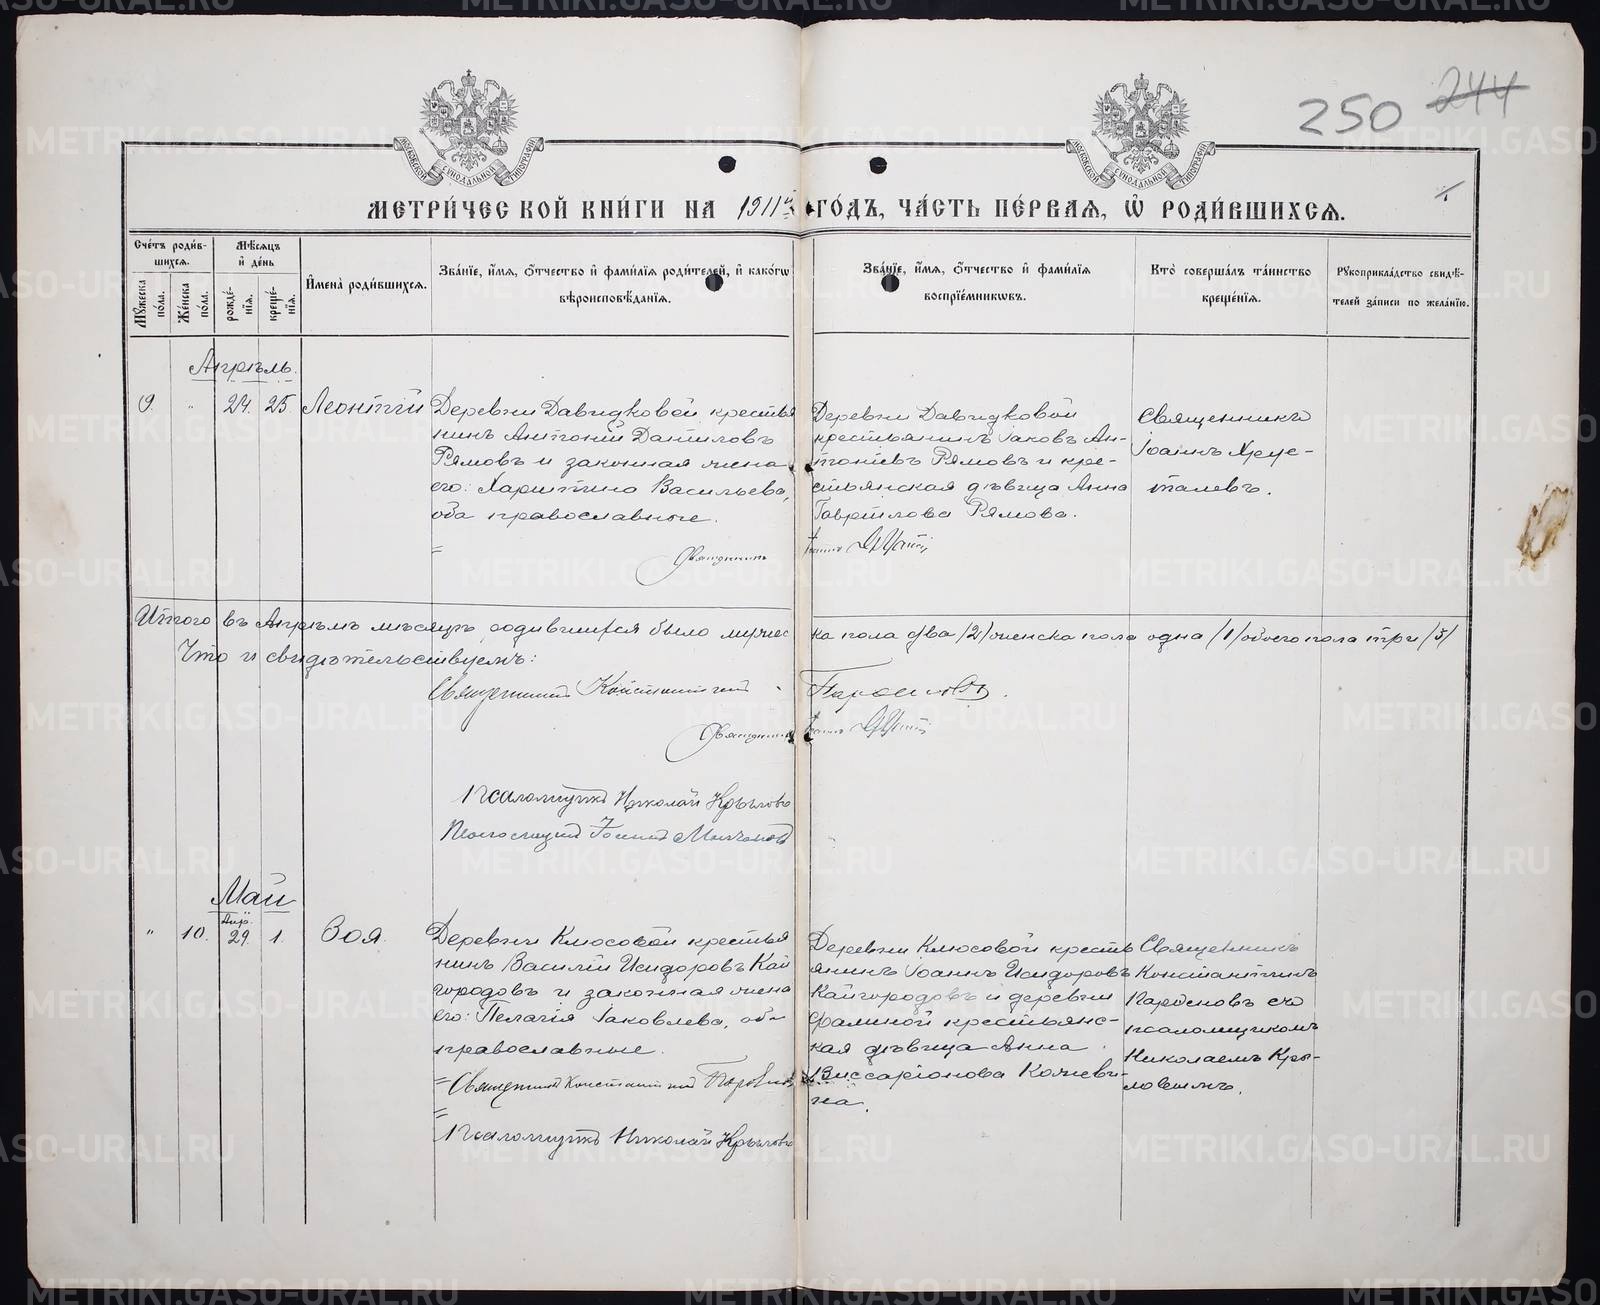 250 244
МОСКОВСКОЙ СѴНОДАЛЬНОЙ ТИПОГРАФІИ
МОСКОВСКОЙ СѴНОДАЛЬНОЙ ТИПОГРАФІИ
МЕТРИ́ЧЕСКОЙ КНИ́ГИ НА 1911й ГО́ДЪ, ЧА́СТЬ ПЕ́РВАЯ, Ѿ РОДИ́ВШИХСЯ.
Сче́тъ роди́вшихся.
Мꙋ́жеска по́ла.
Же́нска по́ла.
Мѣ́сяцъ и҆ де́нь
рожде́нїя.
креще́нїя.
И҆мена̀ роди́вшихся.
Зва́нїе, и҆́мя, ѻ҆́тчество и҆ фами́лїя роди́телей, и҆ како́гѡ вѣроисповѣ́данїя.
Зва́нїе, и҆́мя, ѻ҆́тчество и҆ фами́лїя воспрїе́мникѡвъ.
Кто̀ соверша́лъ та́инство креще́нїя.
Рꙋкоприкла́дство свидѣ́телей за́писи по жела́нїю.
Апрѣль.
9. " 24. 25. Леонтій
Деревни Давыдковой крестья
нинъ Антоній Даниловъ
Рямовъ и законная жена
его: Харитина Васильева,
оба православные.
Священникъ
Деревни Давыдковой
крестьянинъ Іаковъ Ан-
тоніевъ Рямовъ и кре-
стьянская дѣвица Анна
Гавріилова Рямова.
Священникъ
Іоаннъ Хрус-
талевъ.
Итого въ Апрѣлѣ мѣсяцѣ родившихся было мужес ка пола два /2/ женска пола одна /1/ обоего пола три /3/
Что и свидѣтельствуемъ:
Священникъ Константинъ Парѳеновъ.
Священникъ Іоаннъ
Псаломщикъ Николай Крыловъ
Псаломщикъ
Май
" 10. Апр. 29. 1. Зоя.
Деревни Клюсовой крестья
нинъ Василій Исидоровъ Кай
городовъ и законная жена
его: Пелагія Іаковлева, оба
православные.
Священникъ Константинъ Парѳеновъ
Псаломщикъ Николай Крыловъ
Деревни Клюсовой кресть
янинъ Іоаннъ Исидоровъ
Кайгородовъ и деревни
крестьянс-
кая дѣвица Анна
Виссаріонова Кожеви-
на.
Священникъ
Константинъ
Парѳеновъ съ
псаломщикомъ
Николаемъ Кры-
ловымъ.
METRIKI.GASO-URAL.RU